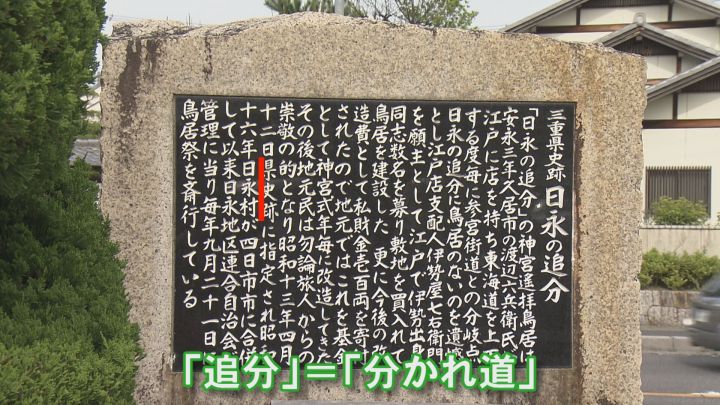 三重県史跡 日永の追分
「日永の追分」の神宮遥拝鳥居は
安永三年久居市の渡辺六兵衛氏が
江戸に店を持ち東海道を上下
する度毎に参宮街道との分岐点
日永の追分に鳥居のないのを遺憾
とし江戸店支配人伊勢屋七右衛門
を願主として江戸で伊勢出身
同志数名を募り敷地を買入れて
鳥居を建設した 更に今後の改
造費として私財金壱百両を寄付
されたので地元ではこれを基金
として神宮式年毎に改造してきた
その後地元民は勿論旅人からの
崇敬の的となり昭和十三年四月
十二日県史跡に指定され昭和
十六年日永村が四日市市に合併
して以来日永地区連合自治会
管理に当り毎年九月二十一日
鳥居祭を斎行している
「追分」=「分かれ道」